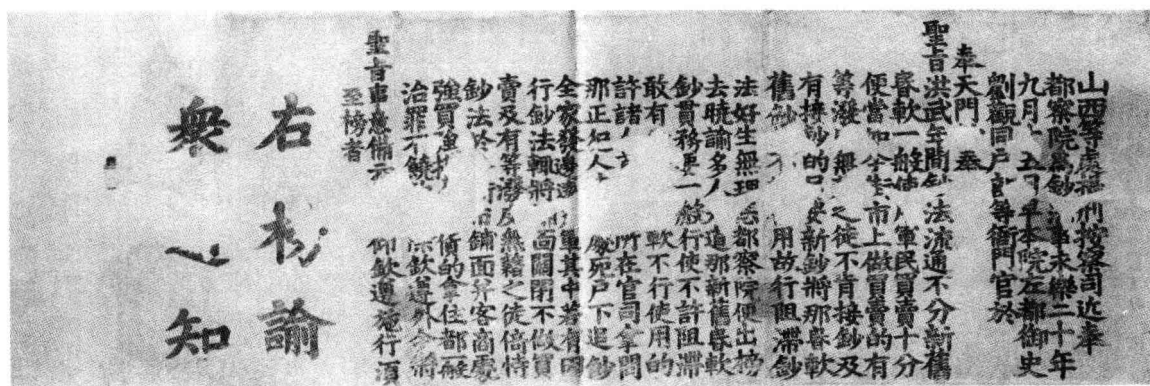 山西等處提刑按察司近奉
都察院爲鈔法事永樂二十年
九月十五日早本院左都御史
劉觀同戶部等衙門官於
奉天門奏
聖旨洪武年間鈔法流通不分新舊
昏軟一般使軍民買賣十分
便當如今街市上做買賣的有
等潑無之徒不肯接鈔及
有接鈔的只要新鈔將那昏軟
舊鈔不用故行阻滯鈔
法好生無理恁都察院便出榜
去曉諭多人道那新舊昏軟
鈔貫務要一般行使不許阻滯
敢有軟不行使用的
許諸人所在官司拿問
那正犯人處死戶下追鈔
全家發邊遠軍其中若有因
行鈔法輒將面關閉不做買
賣及有等潑皮無籍之徒倚恃
鈔法於街鋪面并客商處
強買的拿住都嚴
治罪不饒欽遵外今將
聖旨事意備云仰欽遵施行須
至榜者
右榜諭
衆人知